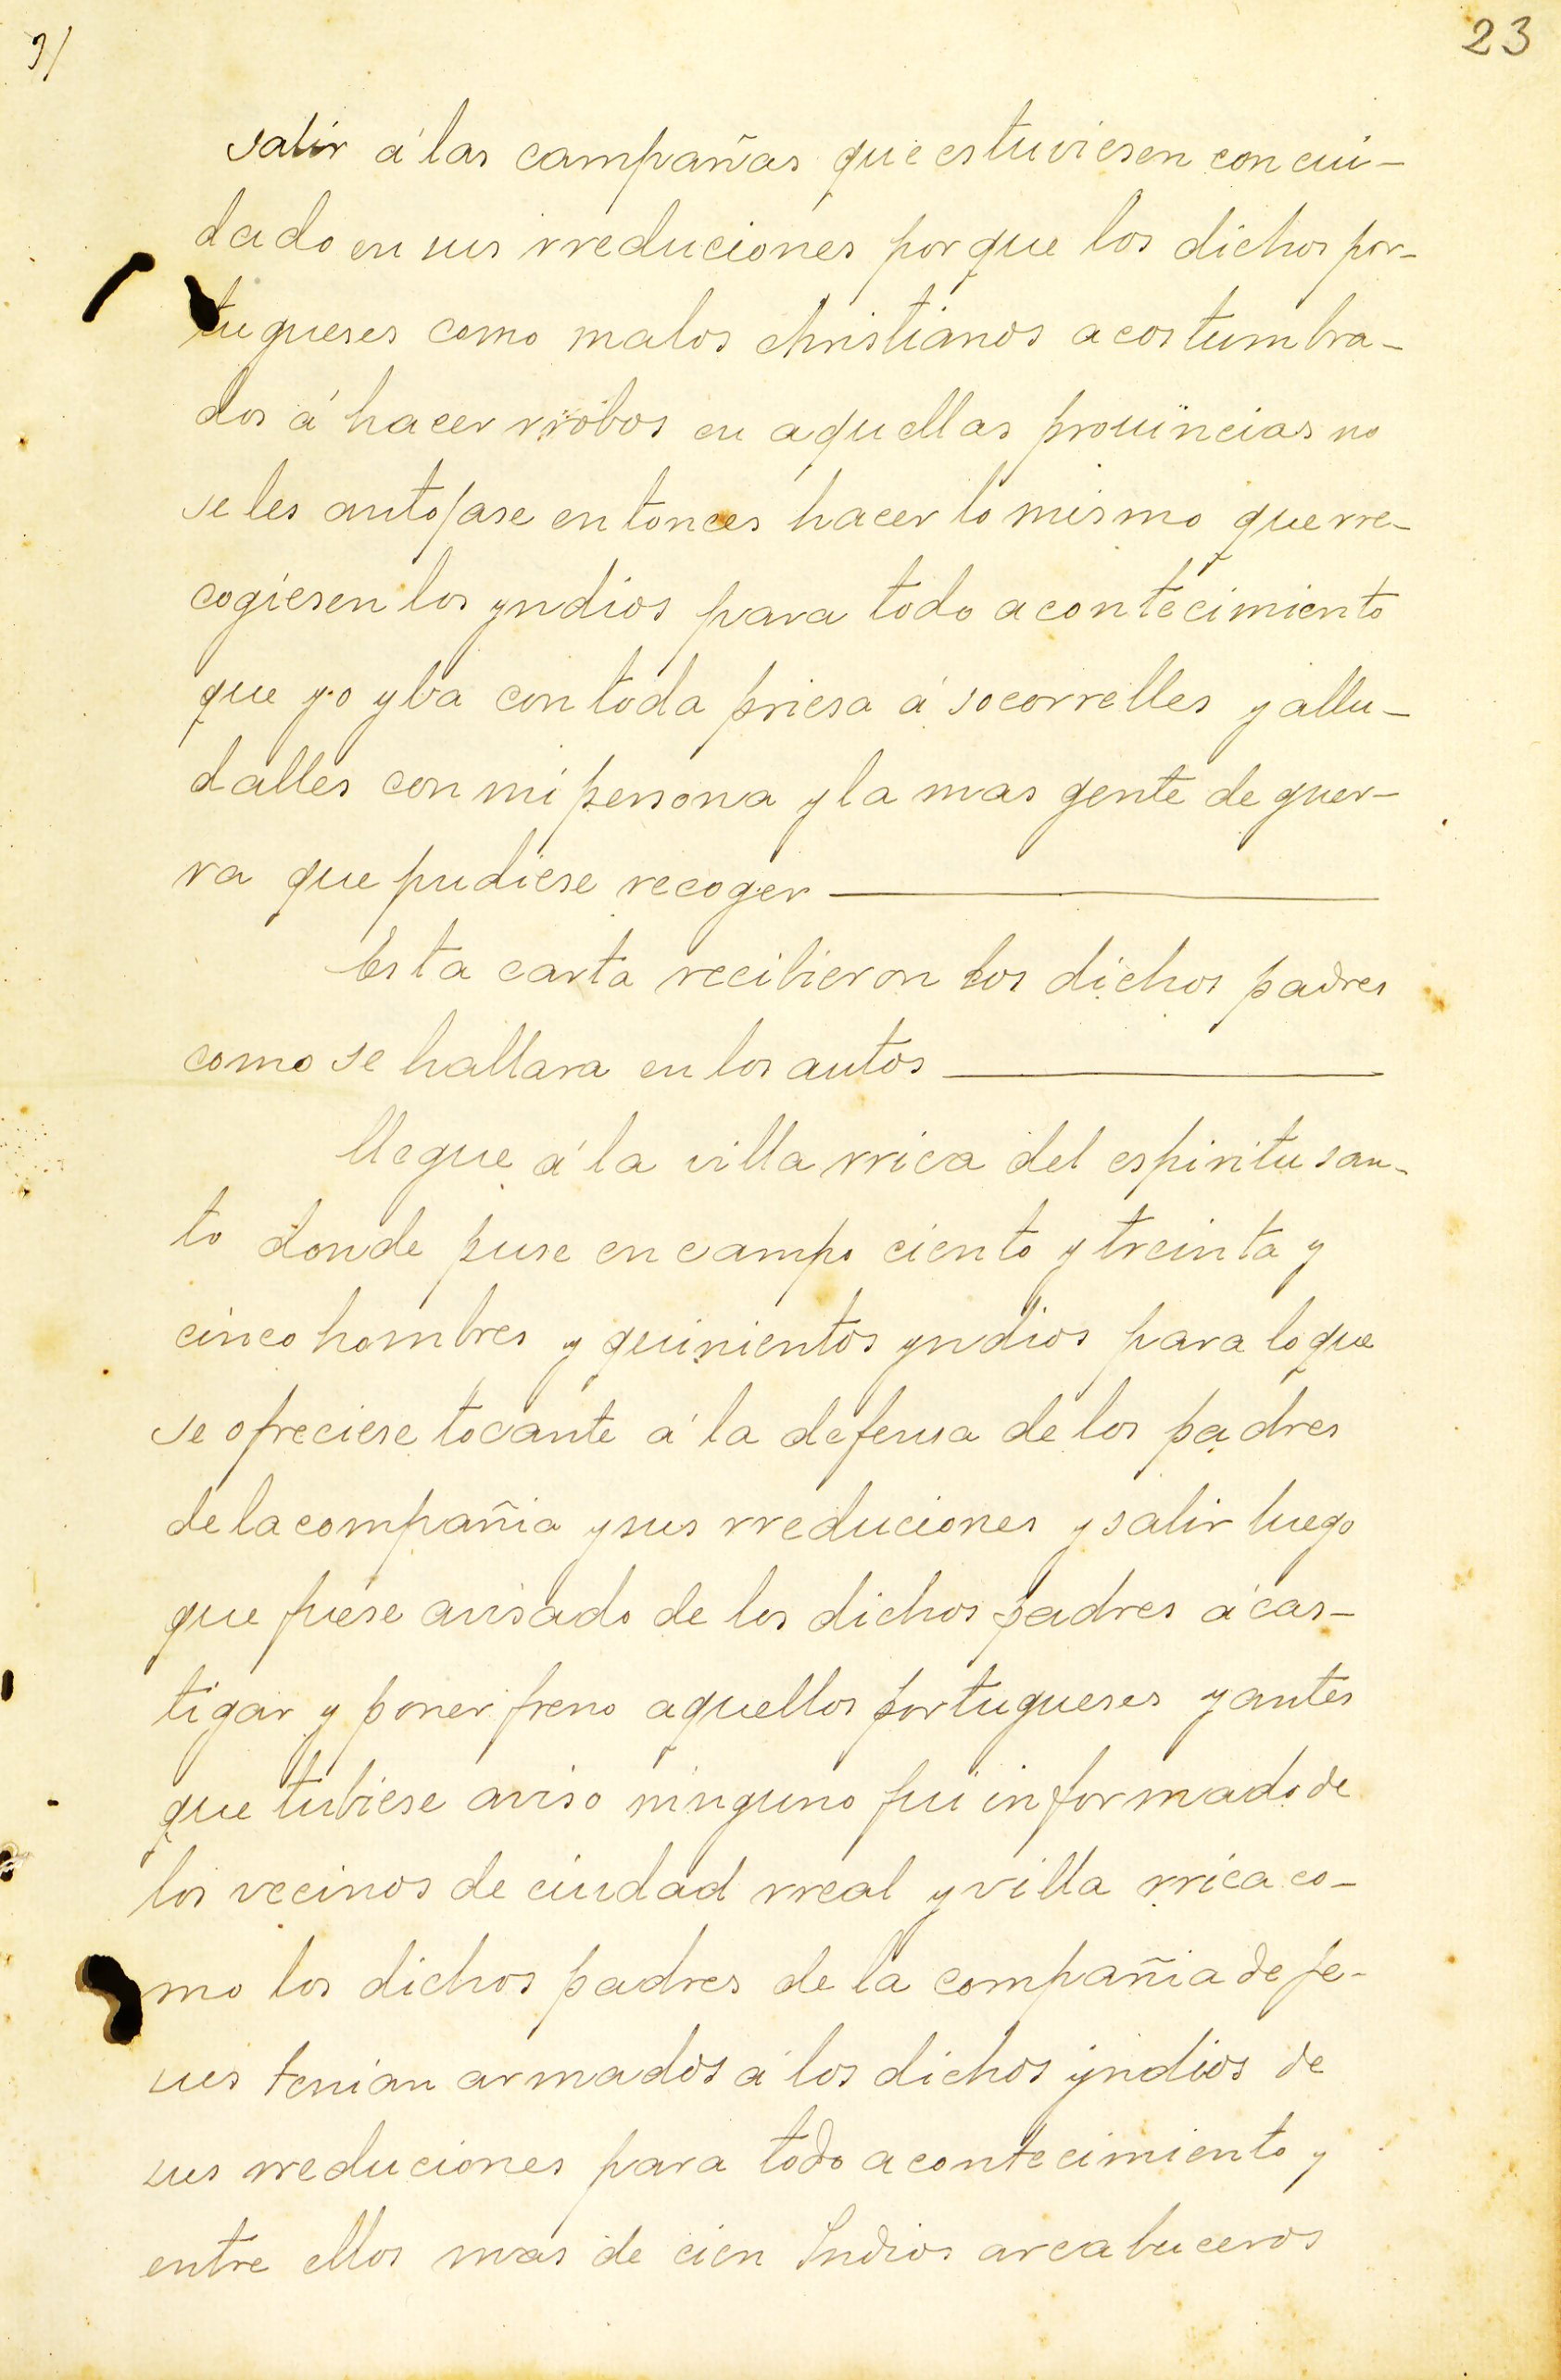 23
salir á las campañas que estuviesen con cui-
dado en sus rreduciones por que los dichos por-
tugueses como malos christianos acostumbra-
dos á hacer rrobos en aquellas prouincias no
se les antojase entonces hacer lo mismo que rre-
cogiesen los yndios para todo acontecimiento
que yo yba con toda priesa á socorrelles y allu-
dalles con mi persona y la mas gente de guer-
ra que pudiese recoger
Esta carta recibieron los dichos padres
como se hallara en los autos
llegue á la villa rrica del espiritu san-
to donde puse en campo ciento y treinta y
cinco hombres y quinientos yndios para lo que
se ofreciese tocante á la defensa de los padres
de la compañia y sus rreduciones y salir luego
que fuese avisado de los dichos padres á cas-
tigar y poner freno aquellos portugueses y antes
que tubiese aviso ninguno fui informado de
los vecinos de ciudad rreal y villa rrica co-
mo los dichos padres de la compañia de je-
sus tenian armados á los dichos yndios de
sus rreduciones para todo acontecimiento y
entre ellos mas de cien Indios arcabuceros